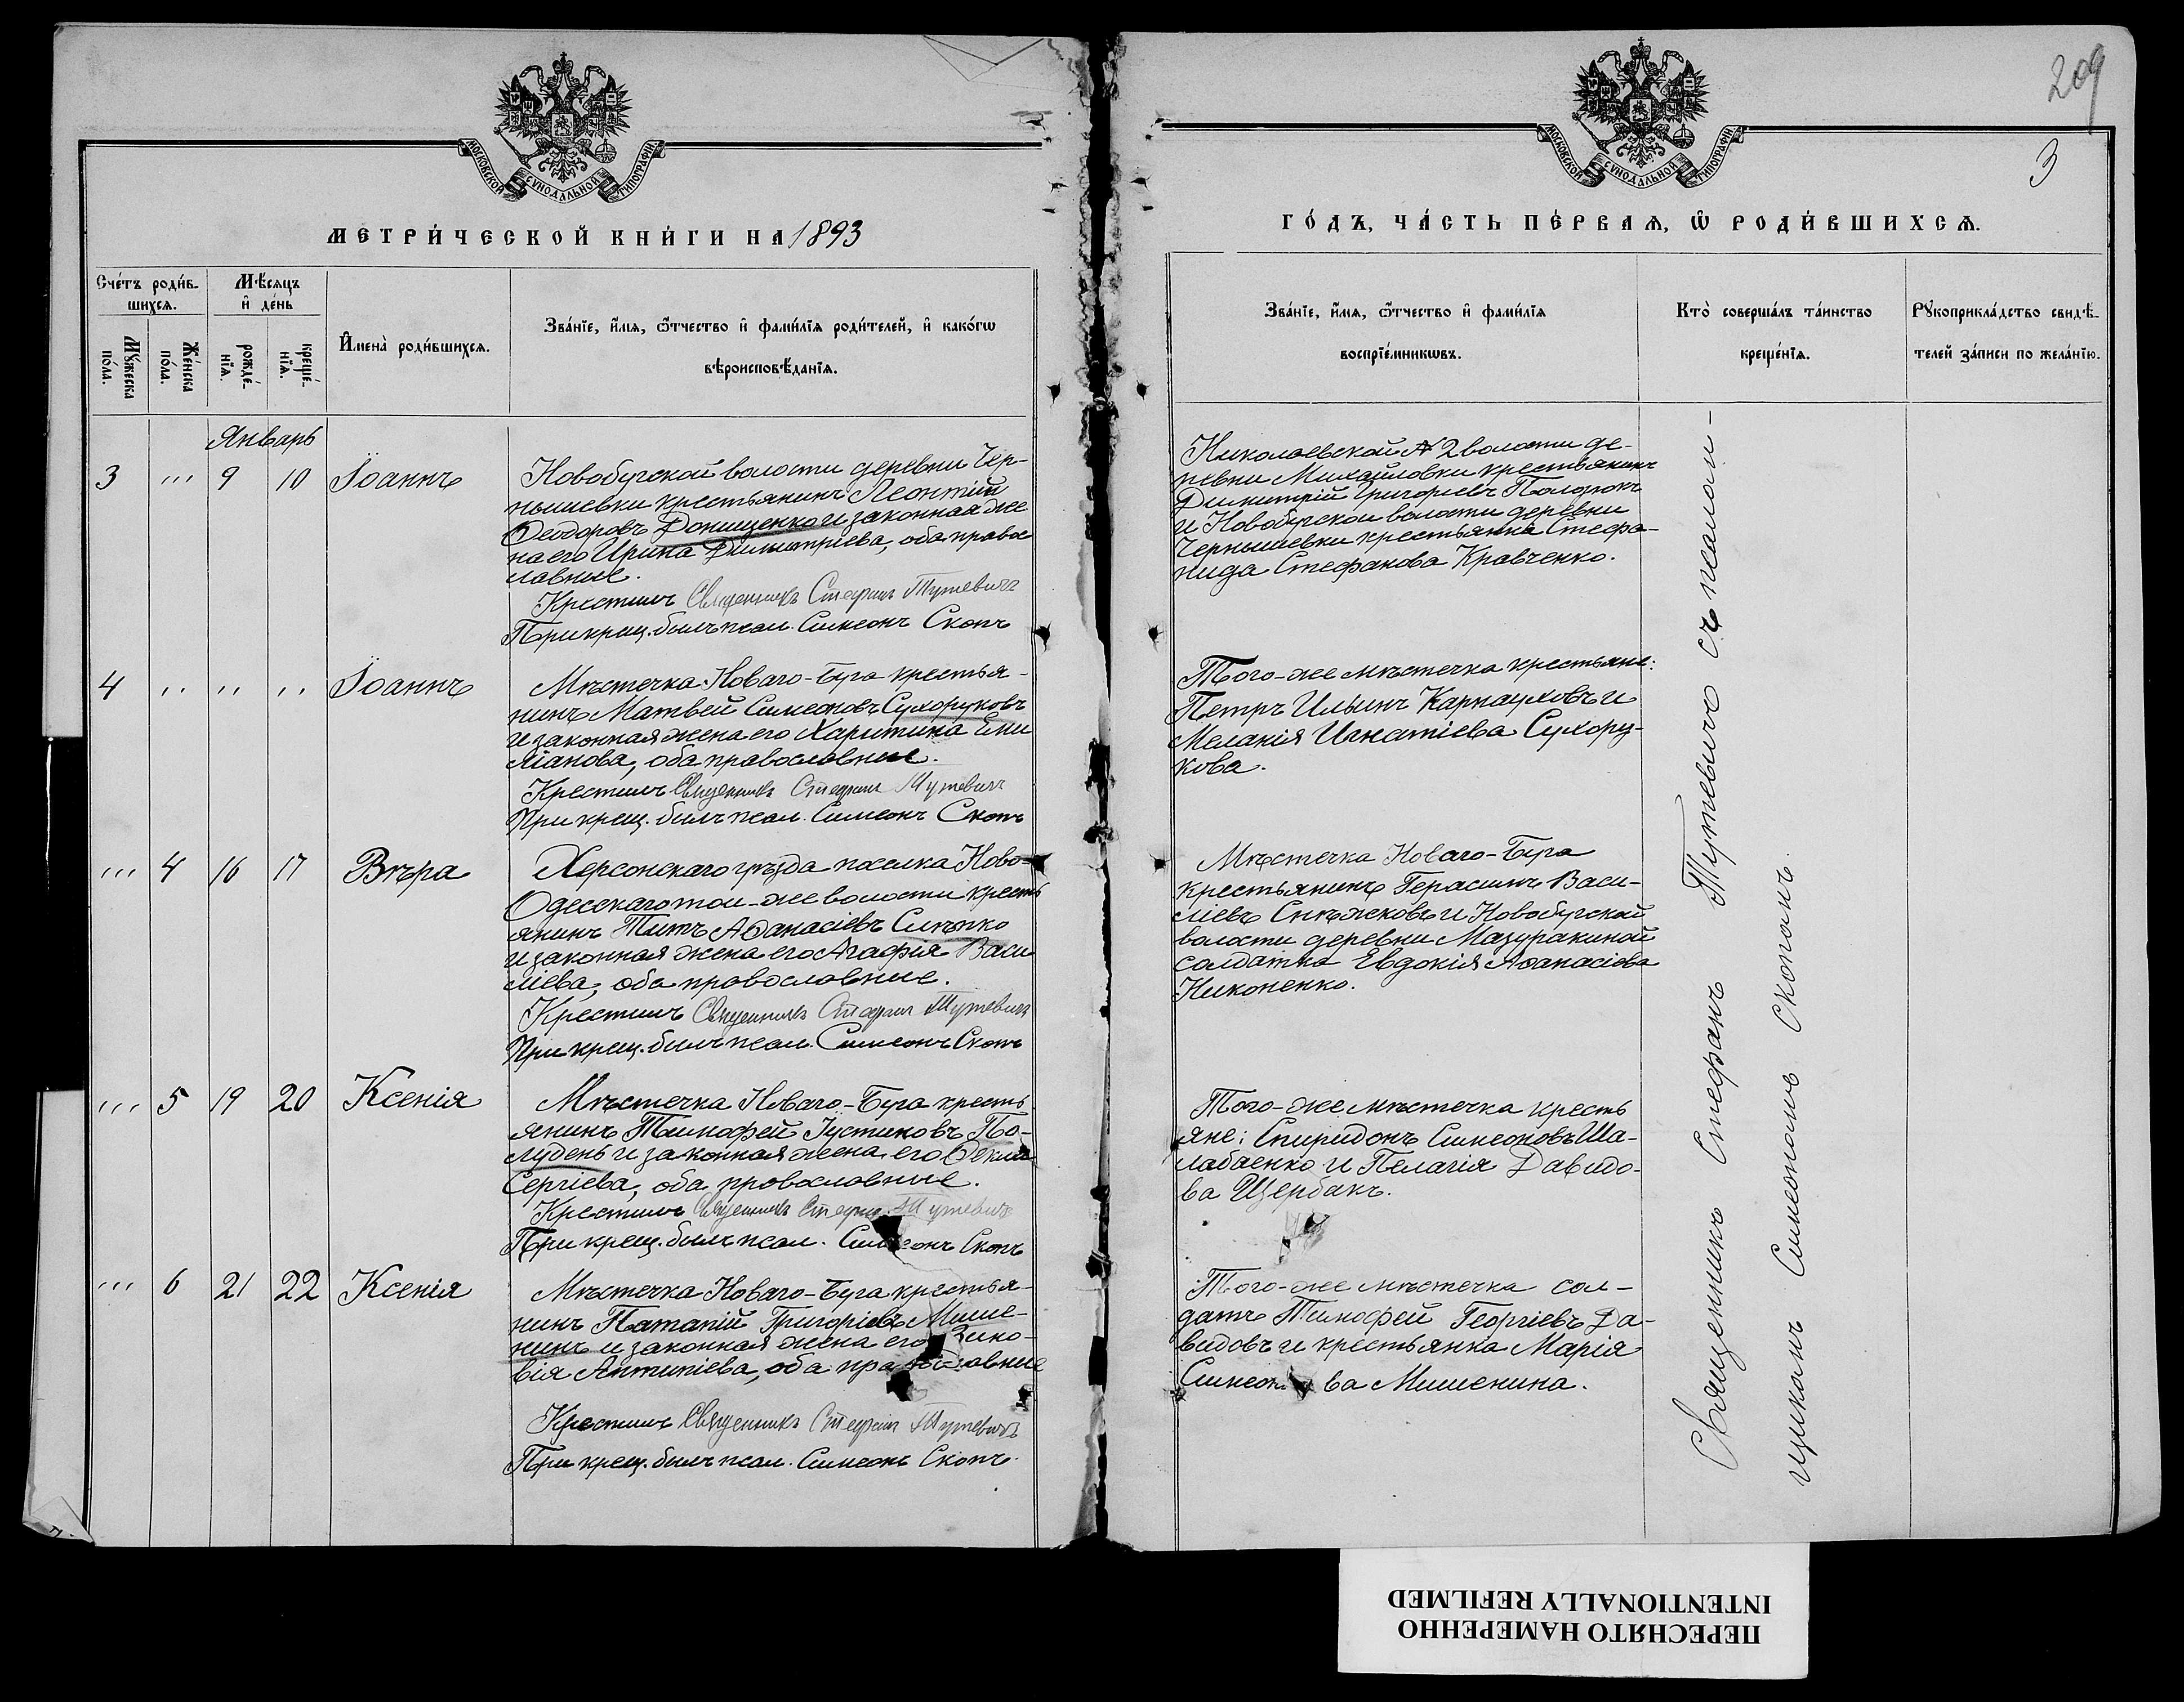 МОСКОВСКОЙ СѴНОДАЛЬНОЙ ТИПОГРАФІИ
МЕТРИ́ЧЕСКОЙ КНИ́ГИ НА 1893
Сче́тъ роди́в-
шихсѧ.
Мѣ́сѧцъ
и҆ де́нь
Мꙋ́жеска
по́ла.
Же́нска
по́ла.
рожде́-
нїѧ.
креще́-
нїѧ.
И҆мена̀ роди́вшихсѧ.
Зва́нїе, и҆́мѧ, ѻ҆́тчество и҆ фами́лїѧ роди́телей, и҆ како́гѡ
вѣроисповѣ́данїѧ.
Январь
3 ''' 9 10 Іоаннъ
Новобугской волости деревни Чер-
нышевки крестьянинъ Леонтій
Ѳеодоровъ Донищенко и законная же
на его Ирина Димитріева, оба право
славные.
Крестилъ Священникъ Стефанъ Тутевичъ
При крещ. былъ псал. Симеонъ Скопъ
4 '' '' '' Іоаннъ
Мѣстечка Новаго-Буга крестья-
нинъ Матвей Симеоновъ Сухоруковъ
и законная жена его Харитина Еми
ліанова, оба православные.
Крестилъ Священникъ Стефанъ Тутевичъ
При крещ. былъ псал. Симеонъ Скопъ
''' 4 16 17 Вѣра
Херсонскаго уѣзда поселка Ново-
Одесскаго той-же волости кресть
янинъ Титъ Аѳанасіевъ Слѣпко
и законная жена его Агафія Васи
ліева, оба православные.
Крестилъ Священникъ Стефанъ Тутевичъ
При крещ. былъ псал. Симеонъ Скопъ
''' 5 19 20 Ксенія
Мѣстечка Новаго-Буга кресть
янинъ Тимофей Іустиновъ По-
лудень и законная жена его Ѳекла
Сергіева, оба православные.
Крестилъ Священникъ Стефанъ Тутевичъ
При крещ. былъ псал. Симеонъ Скопъ
''' 6 21 22 Ксенія
Мѣстечка Новаго-Буга крестья-
нинъ Патапій Григоріевъ Мише-
нинъ и законная жена его Зино-
вія Антипіева, оба православные
Крестилъ Священникъ Стефанъ Тутевичъ
При крещ. былъ псал. Симеонъ Скопъ.
209
3
МОСКОВСКОЙ СѴНОДАЛЬНОЙ ТИПОГРАФІИ
ГО́ДЪ, ЧА́СТЬ ПЕ́РВАѦ, Ѡ҆ РОДИ́ВШИХСѦ.
Зва́нїе, и҆́мѧ, ѻ҆́тчество и҆ фами́лїѧ
воспрїе́мникѡвъ.
Кто̀ соверша́лъ та́инство
креще́нїѧ.
Рꙋкоприкла́дство свидѣ́-
телей за́писи по жела́нїю.
Николаевской № 2 волости де-
ревни Михайловки крестьянинъ
Димитрій Григоріевъ Полозокъ
и Новобугской волости деревни
Чернышевки крестьянка Стефа-
нида Стефанова Кравченко.
Того-же мѣстечка крестьяне:
Петръ Ильинъ Карнауховъ и
Меланія Игнатіева Сухору-
кова.
Мѣстечка Новаго-Буга
крестьянинъ Герасимъ Васи-
ліевъ Снѣжковъ и Новобугской
волости деревни Мазуракиной
солдатка Евдокія Аѳанасіева
Никоненко.
Того-же мѣстечка кресть
яне: Спиридонъ Симеоновъ Ша-
лабаенко и Пелагія Давидо-
ва Щербакъ.
Того-же мѣстечка сол-
датъ Тимофей Георгіевъ Да-
видовъ и крестьянка Марія
Симеонова Мишенина.
Священникъ Стефанъ Тутевичъ съ псалом-
щикомъ Симеономъ Скопомъ.
ПЕРЕСНЯТО НАМЕРЕННО
INTENTIONALLY REFILMED